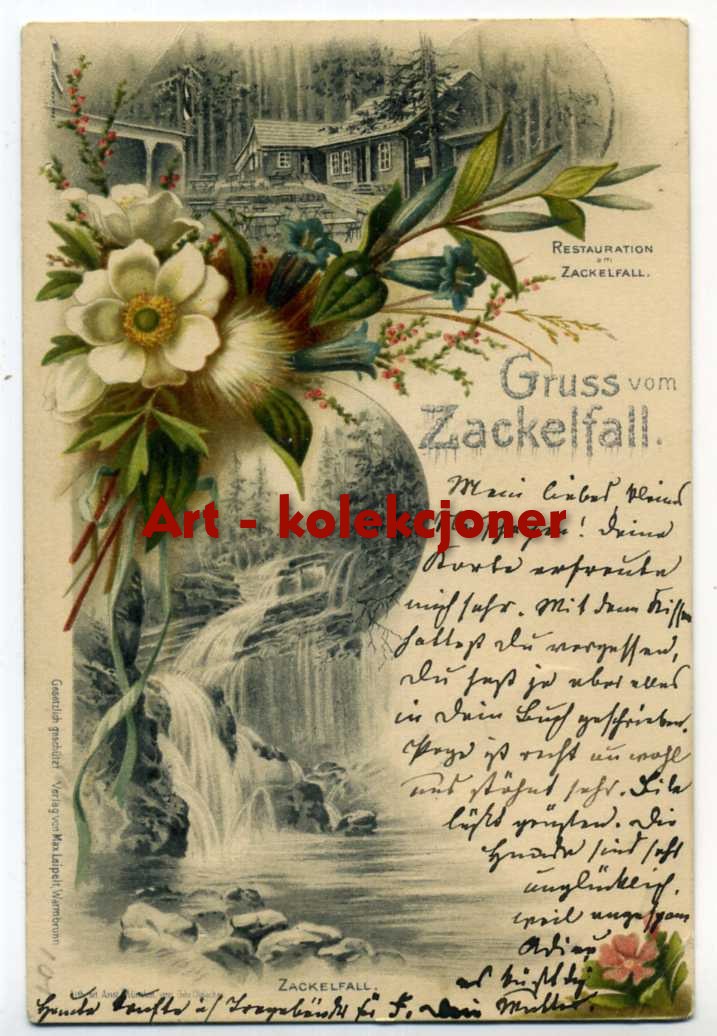 RESTAURATION
am
ZACKELFALL.
Gruss vom
Zackelfall.
Art - kolekcjoner
Mein liebes kleines
! Deine
Karte erfreute
mich sehr. Mit dem Kissen
hattest Du vergessen,
Du hast ja aber alles
in Dein Buch geschrieben.
ist recht unwohl
und stöhnt sehr.
läßt grüßen. Die
Hunde sind sehr
unglücklich,
weil
Adieu
es küßt Dich
Heute kaufte ich Tragebänder für F. Dein Mutter.
ZACKELFALL.
Gesetzlich geschützt. Verlag von Max Leipelt, Warmbrunn